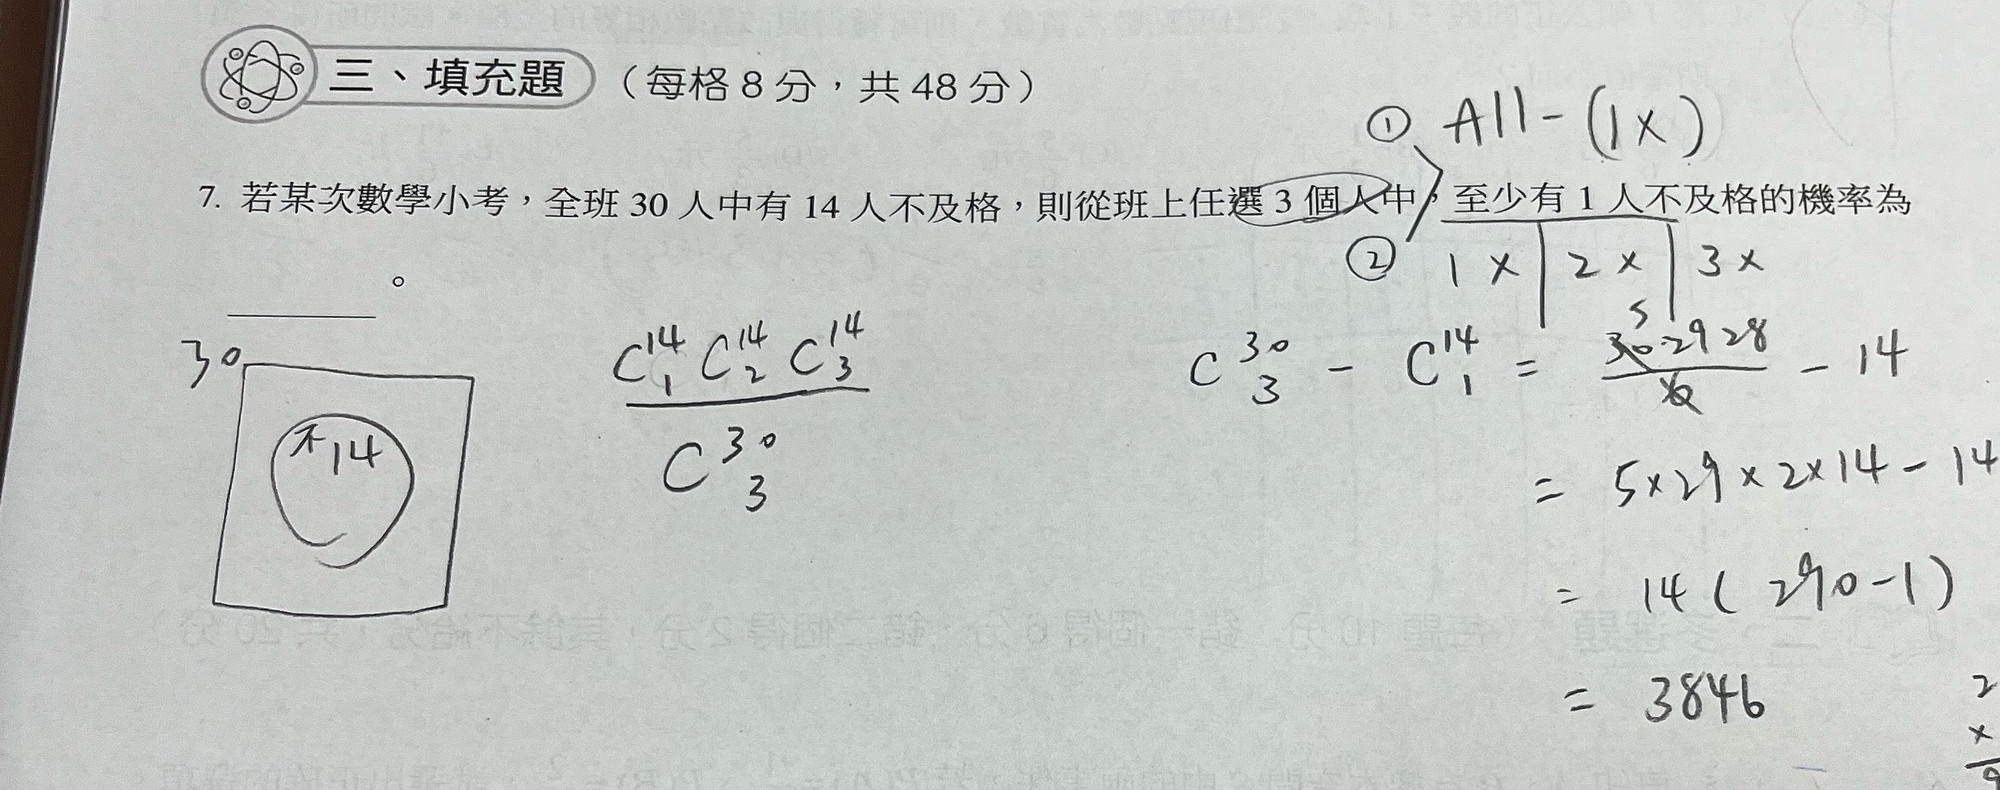 三、填充題（每格 8 分，共 48 分）
① All - (1x)
7. 若某次數學小考，全班 30 人中有 14 人不及格，則從班上任選 3 個人中，至少有 1 人不及格的機率為
______。
② 1x | 2x | 3x
30
不14
C¹⁴₁ C¹⁴₂ C¹⁴₃
C³⁰₃
C³⁰₃ - C¹⁴₁ = 5 30·29 28 / 6 - 14
= 5×29×2×14-14
= 14(290-1)
= 3846
2
×
9